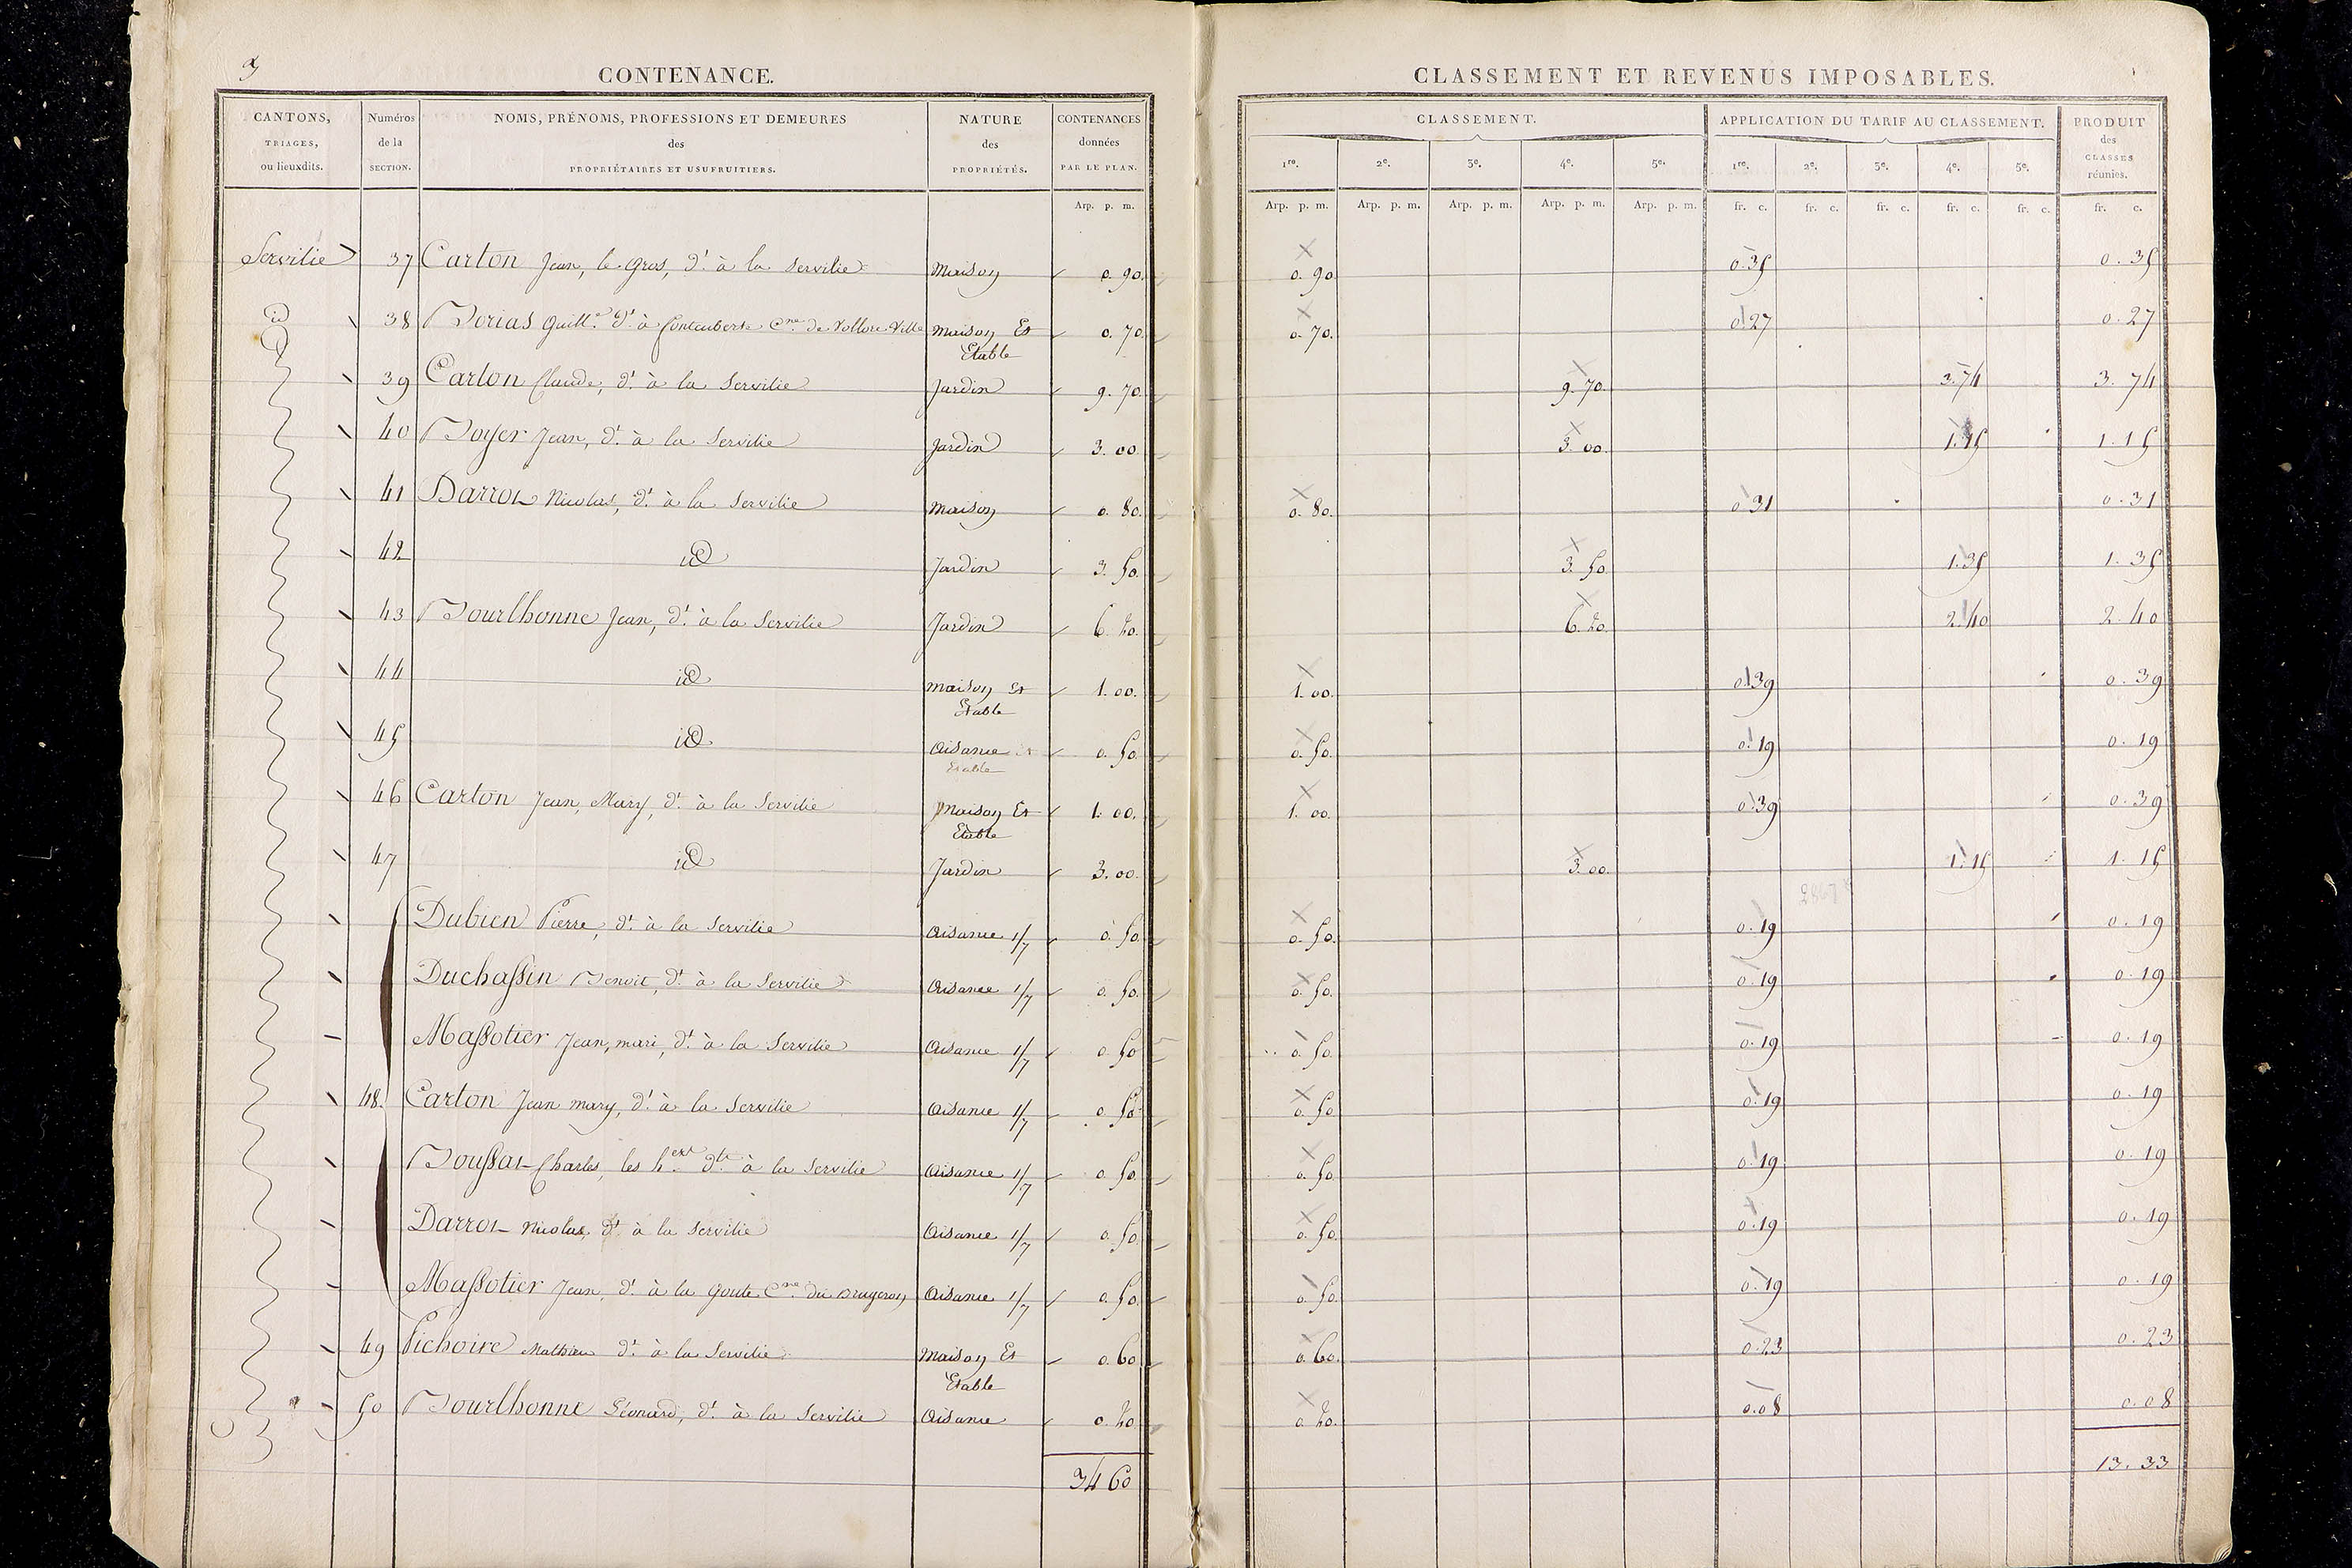 3
CONTENANCE.
CANTONS, TRIAGES, ou lieuxdits. Numéros de la SECTION. NOMS, PRÉNOMS, PROFESSIONS ET DEMEURES des PROPRIÉTAIRES ET USUFRUITIERS. NATURE des PROPRIÉTÉS. CONTENANCES données PAR LE PLAN.
Arp. p. m.
Servilie 37 Carton Jean, le gros, dt. à la Servilie Maison 0. 90.
id 38 Borias Guille. dt. à Cne. de Vollore Ville Maison Et Etable 0. 70.
39 Carton Claude, dt. à la Servilie Jardin 9. 70.
40 Boyer Jean, dt. à la Servilie Jardin 3. 00.
41 Darrot Nicolas, dt. à la Servilie Maison 0. 80.
42 id Jardin 3. 50.
43 Bourlhonne Jean, dt. à la Servilie Jardin 6. 20.
44 id Maison Et Etable 1. 00.
45 id Aisance Et Etable 0. 50.
46 Carton Jean, Mary, dt. à la Servilie Maison Et Etable 1. 00.
47 id Jardin 3. 00.
Dubien Pierre, dt. à la Servilie Aisance 1/7 0. 50.
Duchassin Benoit, dt. à la Servilie Aisance 1/7 0. 50.
Massotier Jean, mari, dt. à la Servilie Aisance 1/7 0. 50
48. Carton Jean mary, dt. à la Servilie Aisance 1/7 0. 50
Boussat Charles, les hers dts. à la Servilie Aisance 1/7 0. 50.
Darrot Nicolas, dt. à la Servilie Aisance 1/7 0. 50.
Massotier Jean, dt. à la Goute Cne. du Brugeron Aisance 1/7 0. 50.
49 Pichoire Mathieu dt. à la Servilie Maison Et Etable 0. 60.
50 Bourlhonne Léonard, dt. à la Servilie Aisance 0. 20.
34 60
CLASSEMENT ET REVENUS IMPOSABLES.
CLASSEMENT. APPLICATION DU TARIF AU CLASSEMENT. PRODUIT des CLASSES réunies.
1re. 2e. 3e. 4e. 5e. 1re. 2e. 3e. 4e. 5e.
Arp. p. m. Arp. p. m. Arp. p. m. Arp. p. m. Arp. p. m. fr. c. fr. c. fr. c. fr. c. fr. c. fr. c.
0. 90 0.35 0. 35
0. 70. 0.27 0. 27
9. 70. 3.74 3. 74
3. 00. 1.15 1. 15
0. 80. 0.31 0. 31
3. 50. 1.35 1. 35
6. 20. 2.40 2. 40
1. 00. 0.39 0. 39
0. 50. 0.19 0. 19
1. 00. 0.39 0. 39
3. 00. 1.15 1. 15
0. 50. 0.19 0. 19
0. 50. 0.19 0. 19
0. 50. 0.19 0. 19
0. 50. 0.19 0. 19
0. 50. 0.19 0. 19
0. 50. 0.19 0. 19
0. 50. 0.19 0. 19
0. 60. 0.23 0. 23
0. 20. 0.08 0. 08
13. 33